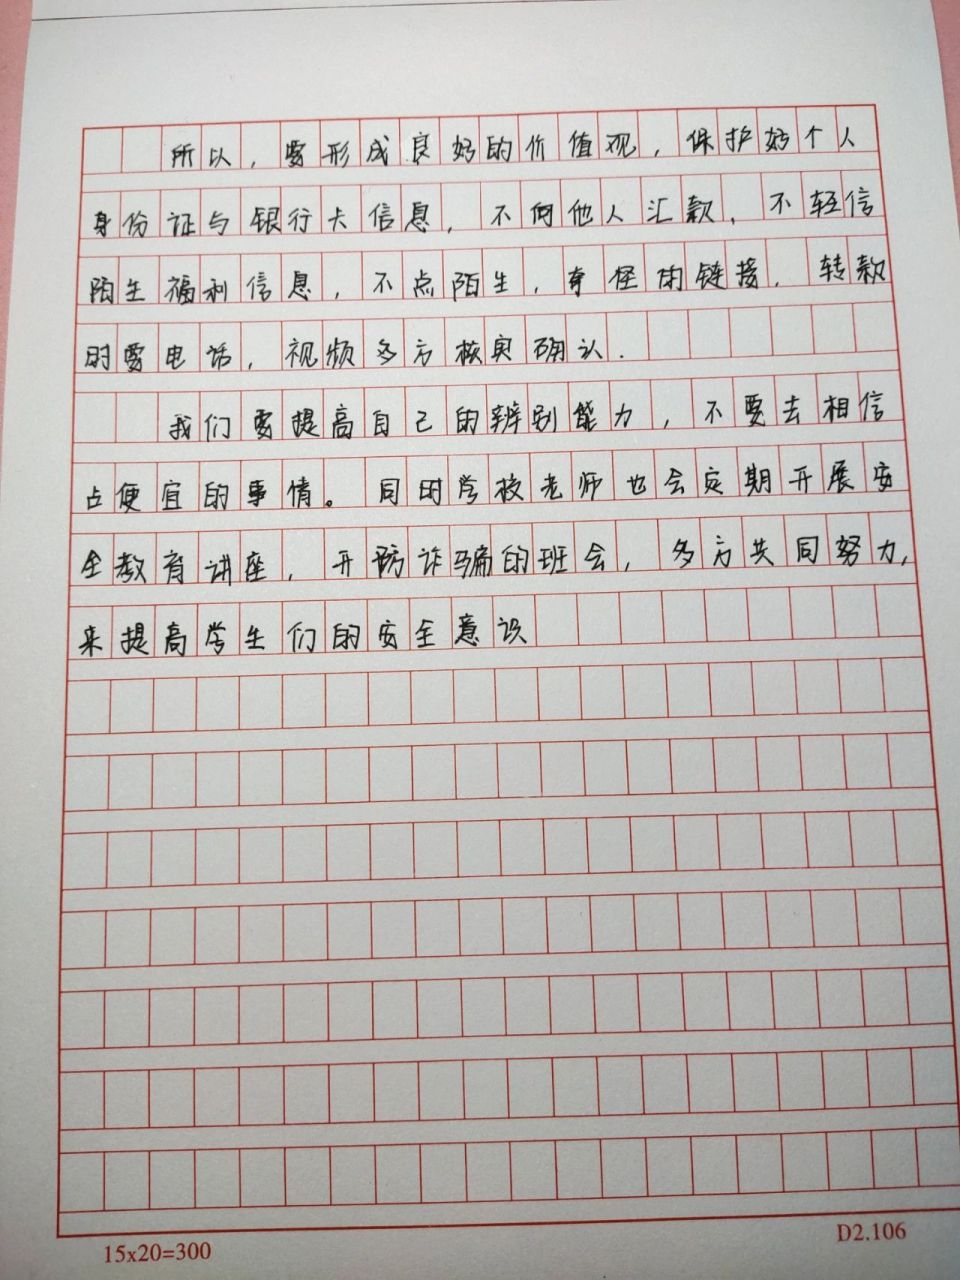 所以，要形成良好的价值观，保护好个人
身份证与银行卡信息，不向他人汇款，不轻信
陌生福利信息，不点陌生，奇怪的链接，转款
时要电话，视频多方核实确认.
我们要提高自己的辨别能力，不要去相信
占便宜的事情。同时学校老师也会定期开展安
全教育讲座，开防诈骗的班会，多方共同努力，
来提高学生们的安全意识
15x20=300
D2.106